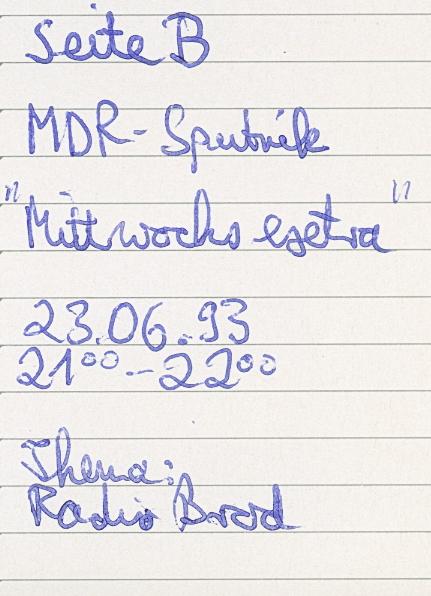 Seite B
MDR-Sputnik
"Mittwochs extra"
23.06.93
21⁰⁰-22⁰⁰
Thema:
Radio Brod